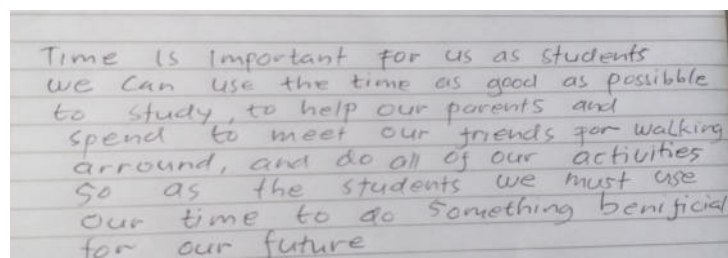 Time is important for us as students
we can use the time as good as possibble
to study, to help our parents and
spend to meet our friends for walking
arround, and do all of our activities
So as the students we must use
our time to do something benificial
for our future